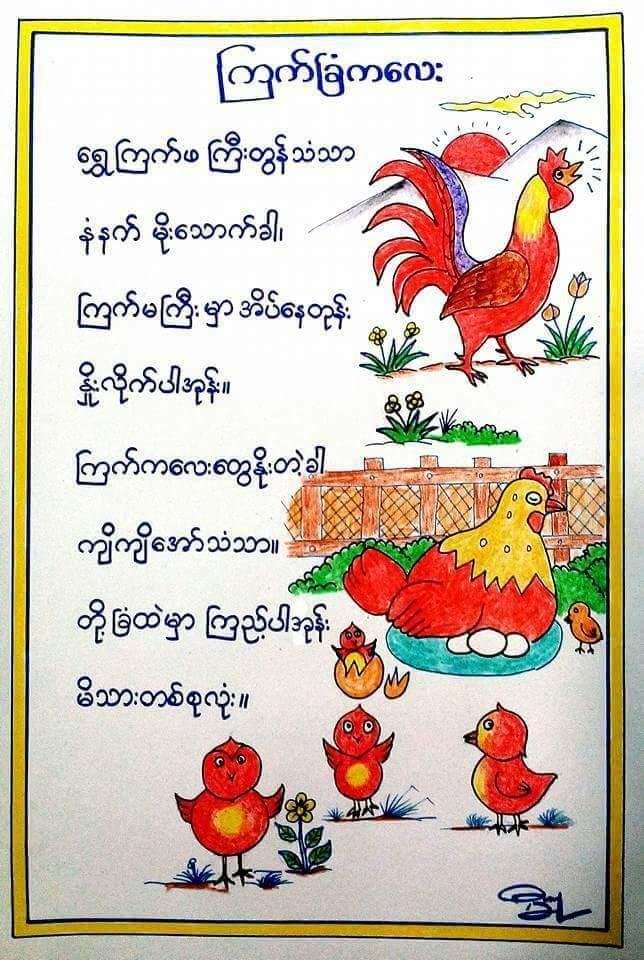 ကြက်ခြံကလေး
ရွှေကြက်ဖ ကြီးတွန်သံသာ
နံနက် မိုးသောက်ခါ၊
ကြက်မကြီးမှာ အိပ်နေတုန်း
နှိုးလိုက်ပါအုန်း။
ကြက်ကလေးတွေနိုးတဲ့ခါ
ကျိကျိအော်သံသာ။
တို့ခြံထဲမှာ ကြည့်ပါအုန်း
မိသားတစ်စုလုံး။